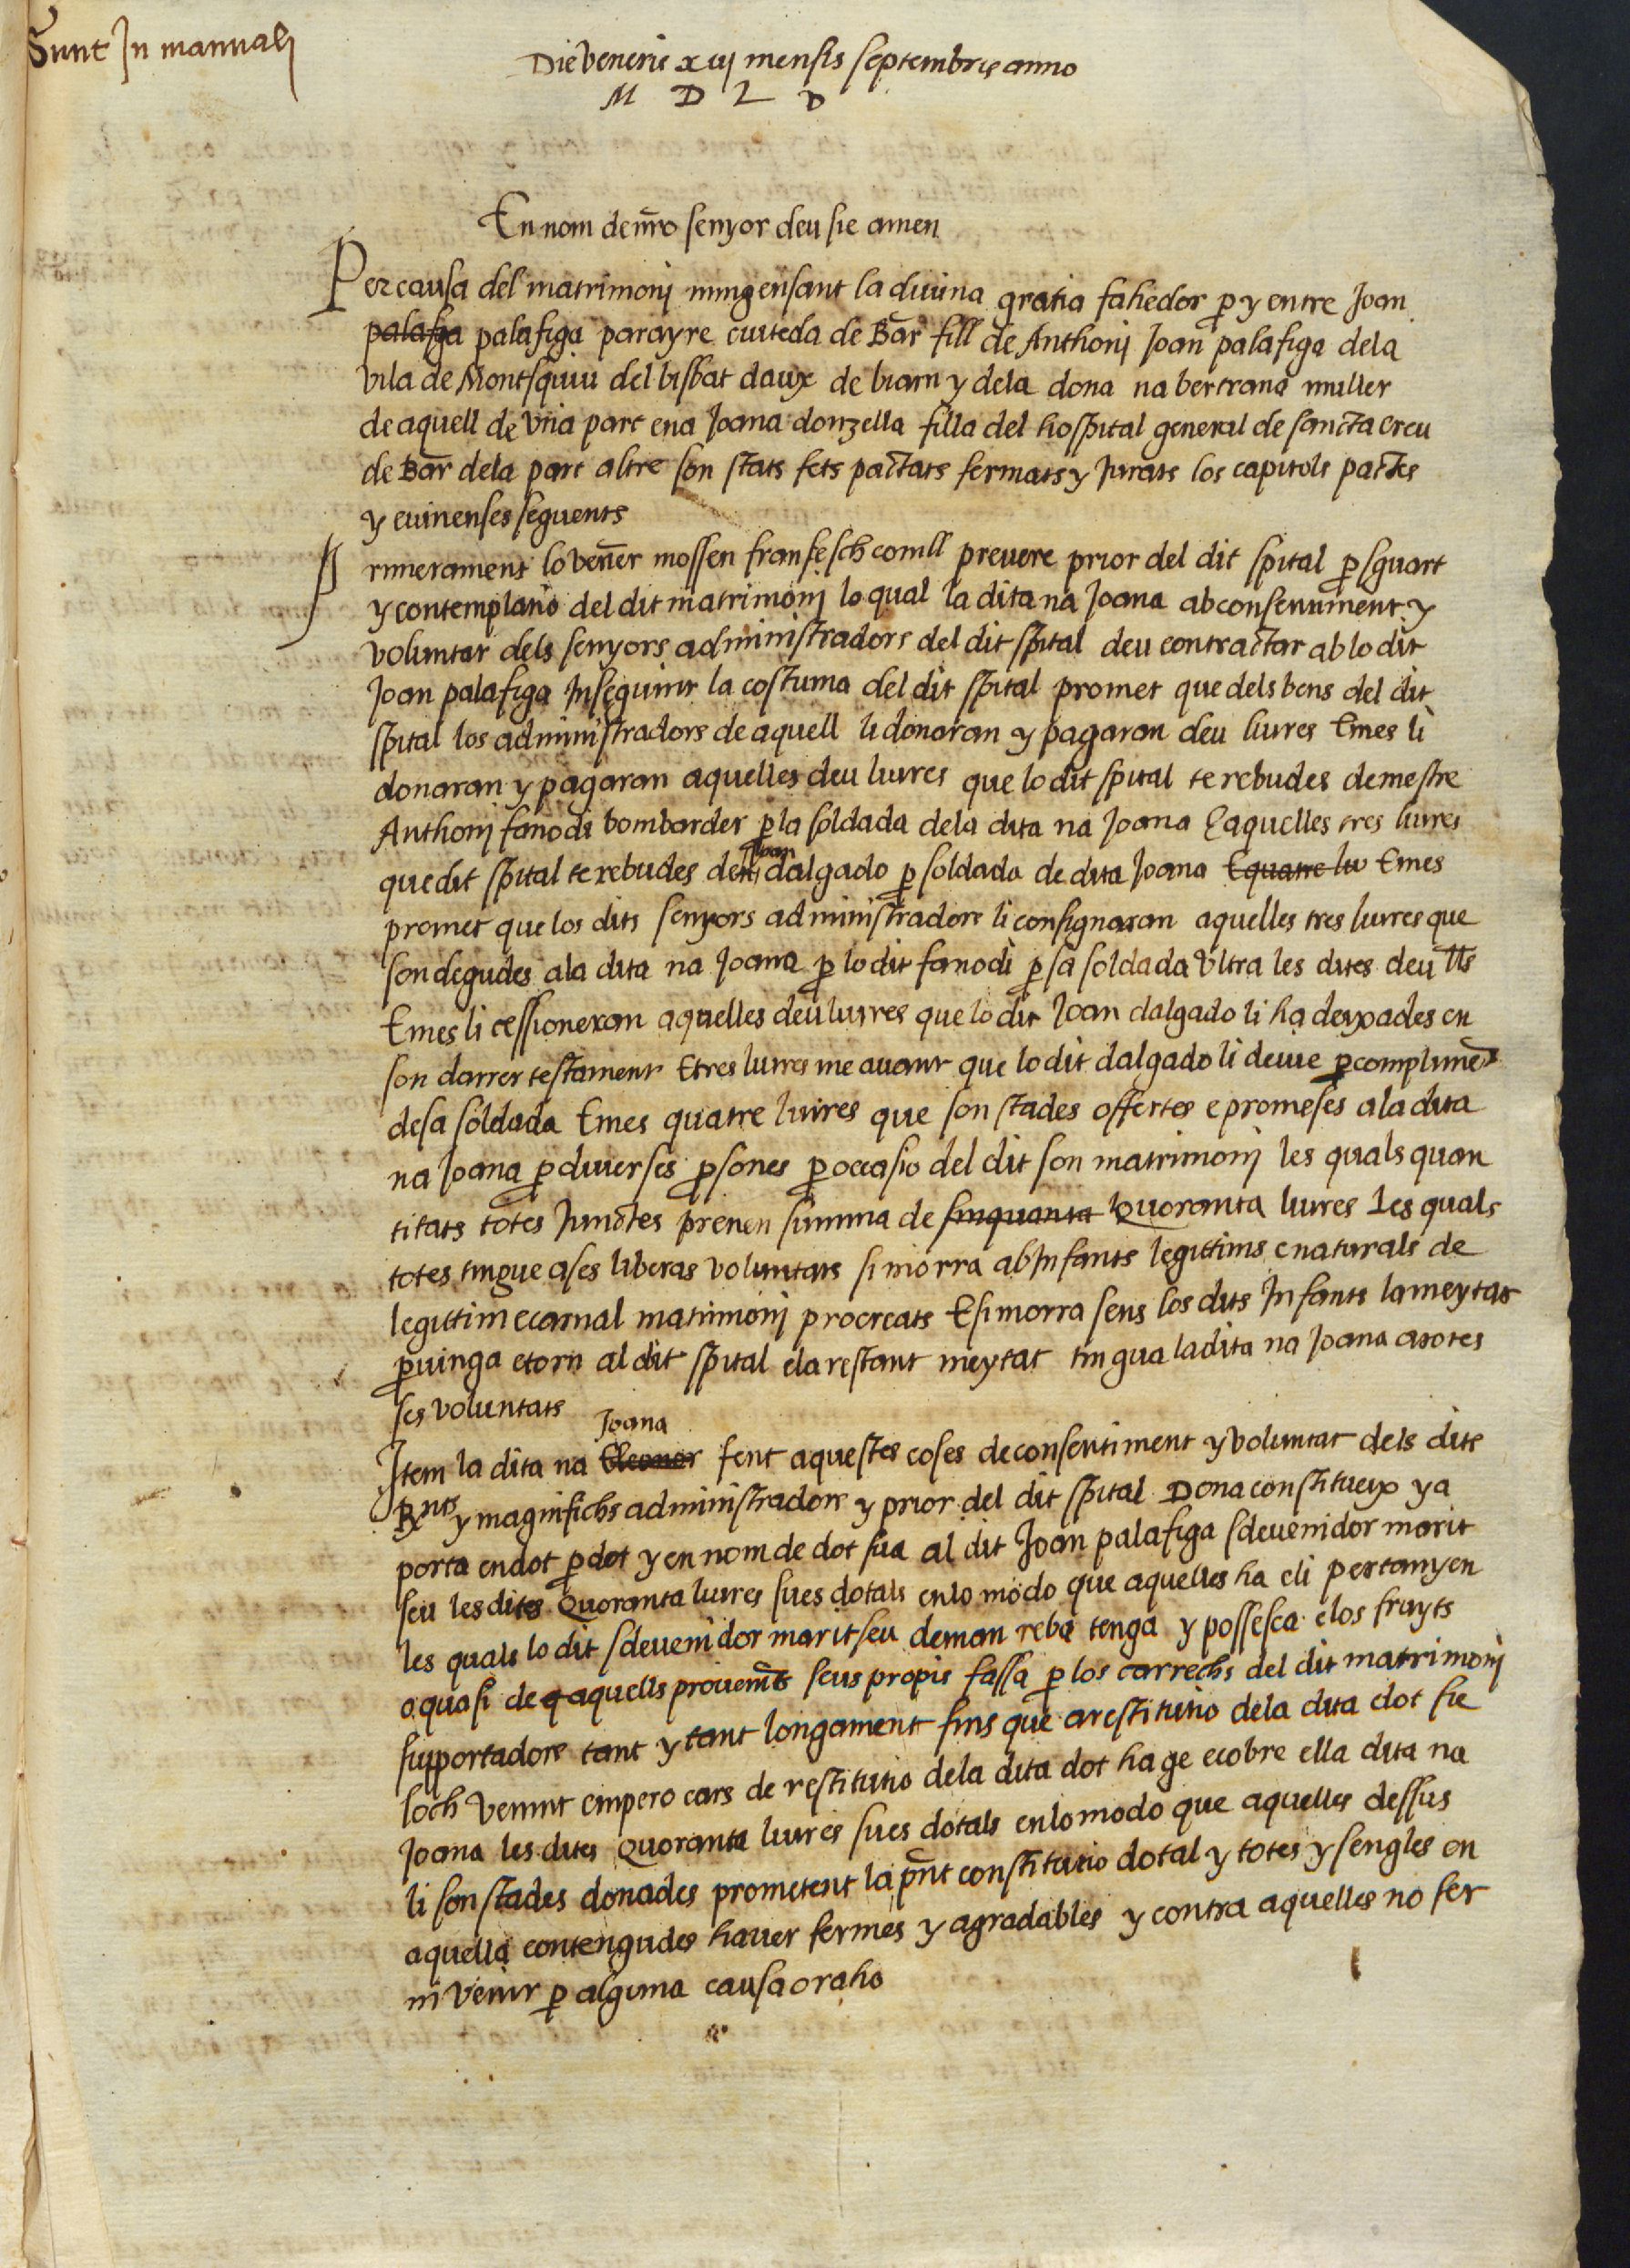 Sunt In manuali
Die veneris xiij mensis septembris anno
M D L D
En nom de nr̄o senyor deu sie amen
Per causa del matrimonj mijensant la diuina gratia fahedor p̱ y entre Joan
palafiga palafiga parayre ciuteda de Bar̄ fill de Anthonj Joan palafiga dela
vila de Montsquiu del bisbat daux de biarn y dela dona na bertrana muller
de aquell de vna part e na Joana donzella filla del hospital general de sancta creu
de Bar̄ dela part altre son stats fets pactats fermats y Jurats los capitols pactes
y auinenses seguents
Primerament lo vener̄ mossen fransesch comll preuere prior del dit spital p̱ sguart
y contemplatio del dit matrimonj lo qual la dita na Joana ab consentiment y
voluntat dels senyors administradors del dit spital deu contractar ab lo dit
Joan palafiga Inseguint la costuma del dit spital promet que dels bens del dit
spital los administradors de aquell li donaran y pagaran deu liures E mes li
donaran y pagaran aquelles deu liures que lo dit spital te rebudes de mestre
Anthonj fanodi bombarder p̱ la soldada dela dita na Joana E aquelles tres liures
que dit spital te rebudes den Joan dalgado p̱ soldada de dita Joana E quatre liu E mes
promet que los dits senyors administradors li consignaran aquelles tres liures que
son degudes ala dita na Joana p̱ lo dit fanodi p̱ sa soldada vltra les dites deu ll̄s
E mes li cessioneran aquelles deu liures que lo dit Joan dalgado li ha deixades en
son darrer testament E tres liures me auant que lo dit dalgado li deuie p̱ complimēt
de sa soldada E mes quatre liures que son stades offertes e promeses ala dita
na Joana p̱ diuerses p̱sones p̱ occasio del dit son matrimonj les quals quan
titats totes Junctes prenen summa de sinquanta Quoranta liures Les quals
totes tingue a ses liberas voluntats si morra ab Infants legittims e naturals de
legittim e carnal matrimonj procreats E si morra sens los dits Infants la meytat
p̱uinga e torn al dit spital e la restant meytat tingua la dita na Joana a totes
ses voluntats
Item la dita na Eleonor Joana fent aquestes coses de consentiment y voluntat dels dits
Rnts y magnifichs administradors y prior del dit spital Dona constitueix y a
porta en dot p̱ dot y en nom de dot sua al dit Joan palafiga sdeuenidor marit
seu les dites Quoranta liures sues dotals en lo modo que aquelles ha e li pertanyen
les quals lo dit sdeuenidor marit seu deman reba tenga y possesca e los fruyts
o quasi de q aquells prouenīts seus propis fassa p̱ los carrechs del dit matrimonj
supportadors tant y tant longament fins que a restitutio dela dita dot sie
loch venint empero cars de restitutio dela dita dot hage e cobre ella dita na
Joana les dites Quoranta liures sues dotals en lo modo que aquelles dessus
li son stades donades prometent la pn̄t constitutio dotal y totes y sengles en
aquella contengudes hauer fermes y agradables y contra aquelles no fer
ni venir p̱ alguna causa o raho